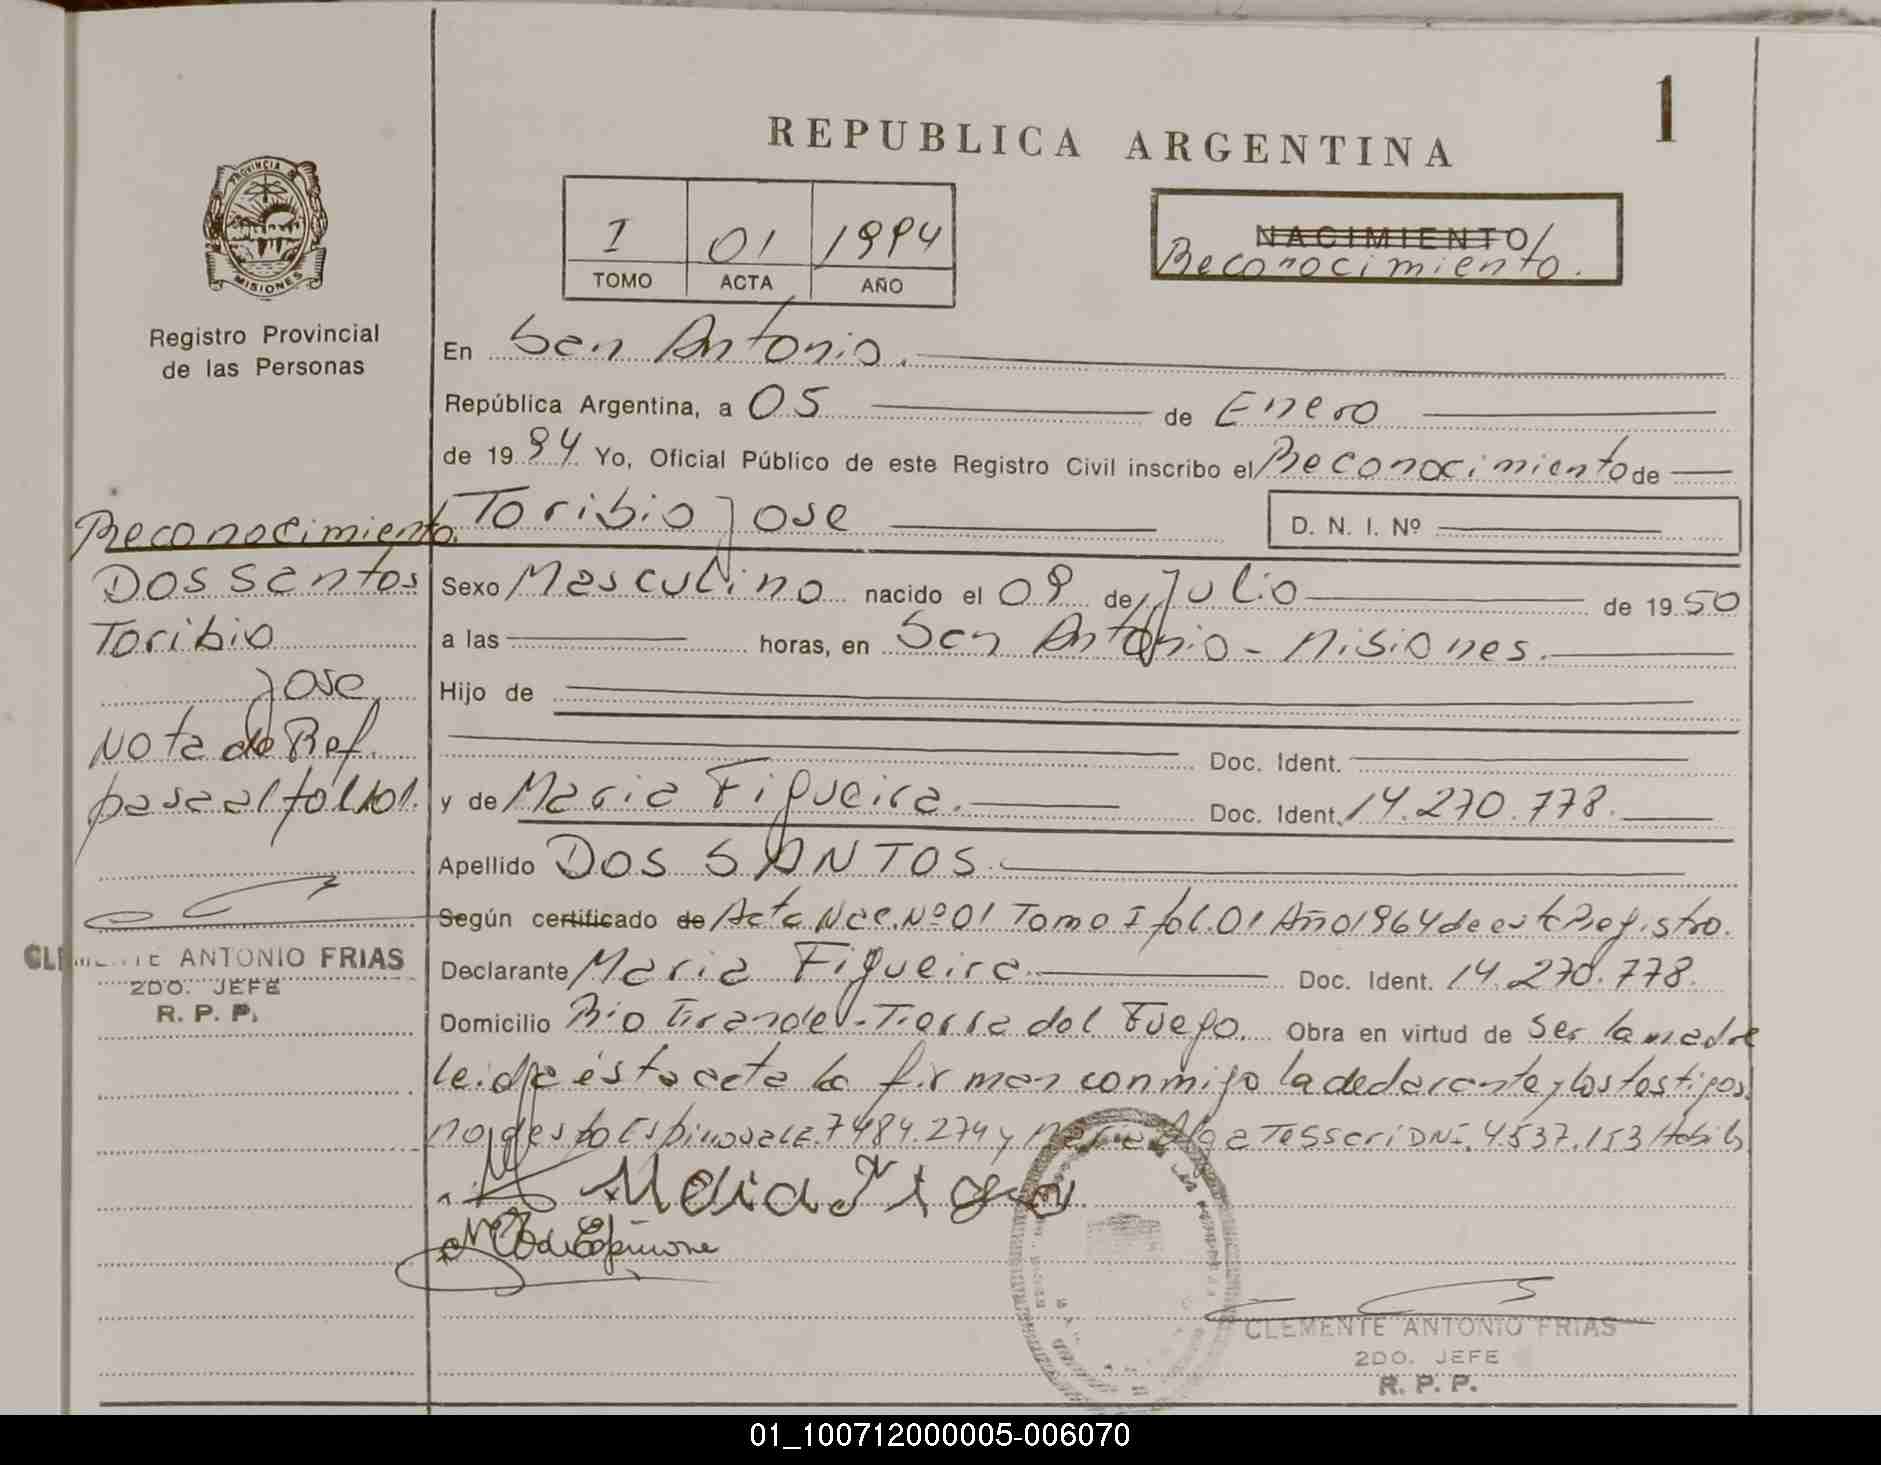 1
REPUBLICA ARGENTINA
PROVINCIA DE
MISIONES
Registro Provincial
de las Personas
I 01 1994
TOMO ACTA AÑO
NACIMIENTO/
Reconocimiento.
En San Antonio.
República Argentina, a 05 de Enero
de 1994 Yo, Oficial Público de este Registro Civil inscribo el Reconocimiento de
Toribio Jose D. N. I. Nº
Sexo Masculino nacido el 09 de Julio de 1950
a las horas, en San Antonio - Misiones.
Hijo de
Doc. Ident.
y de Maria Figueira. Doc. Ident. 14.270.778.
Apellido DOS SANTOS.
Según certificado de Acta Nac. Nº 01 Tomo I fol. 01 Año 1964 de este Registro.
Declarante Maria Figueira. Doc. Ident. 14.270.778.
Domicilio Rio Grande - Tierra del Fuego. Obra en virtud de Ser la madre
leida ésta acta la firman conmigo la declarante y los testigos
Modesto Espinosa LE. 7484.274 y Maria Olga Tesseri DNI. 4.537.153 Habils
Maria Figera
CLEMENTE ANTONIO FRIAS
2DO. JEFE
R. P. P.
Reconocimiento.
Dos Santos
Toribio
Jose
Nota de Ref.
pasa al fol 101.
CLEMENTE ANTONIO FRIAS
2DO. JEFE
R. P. P.
01_100712000005-006070